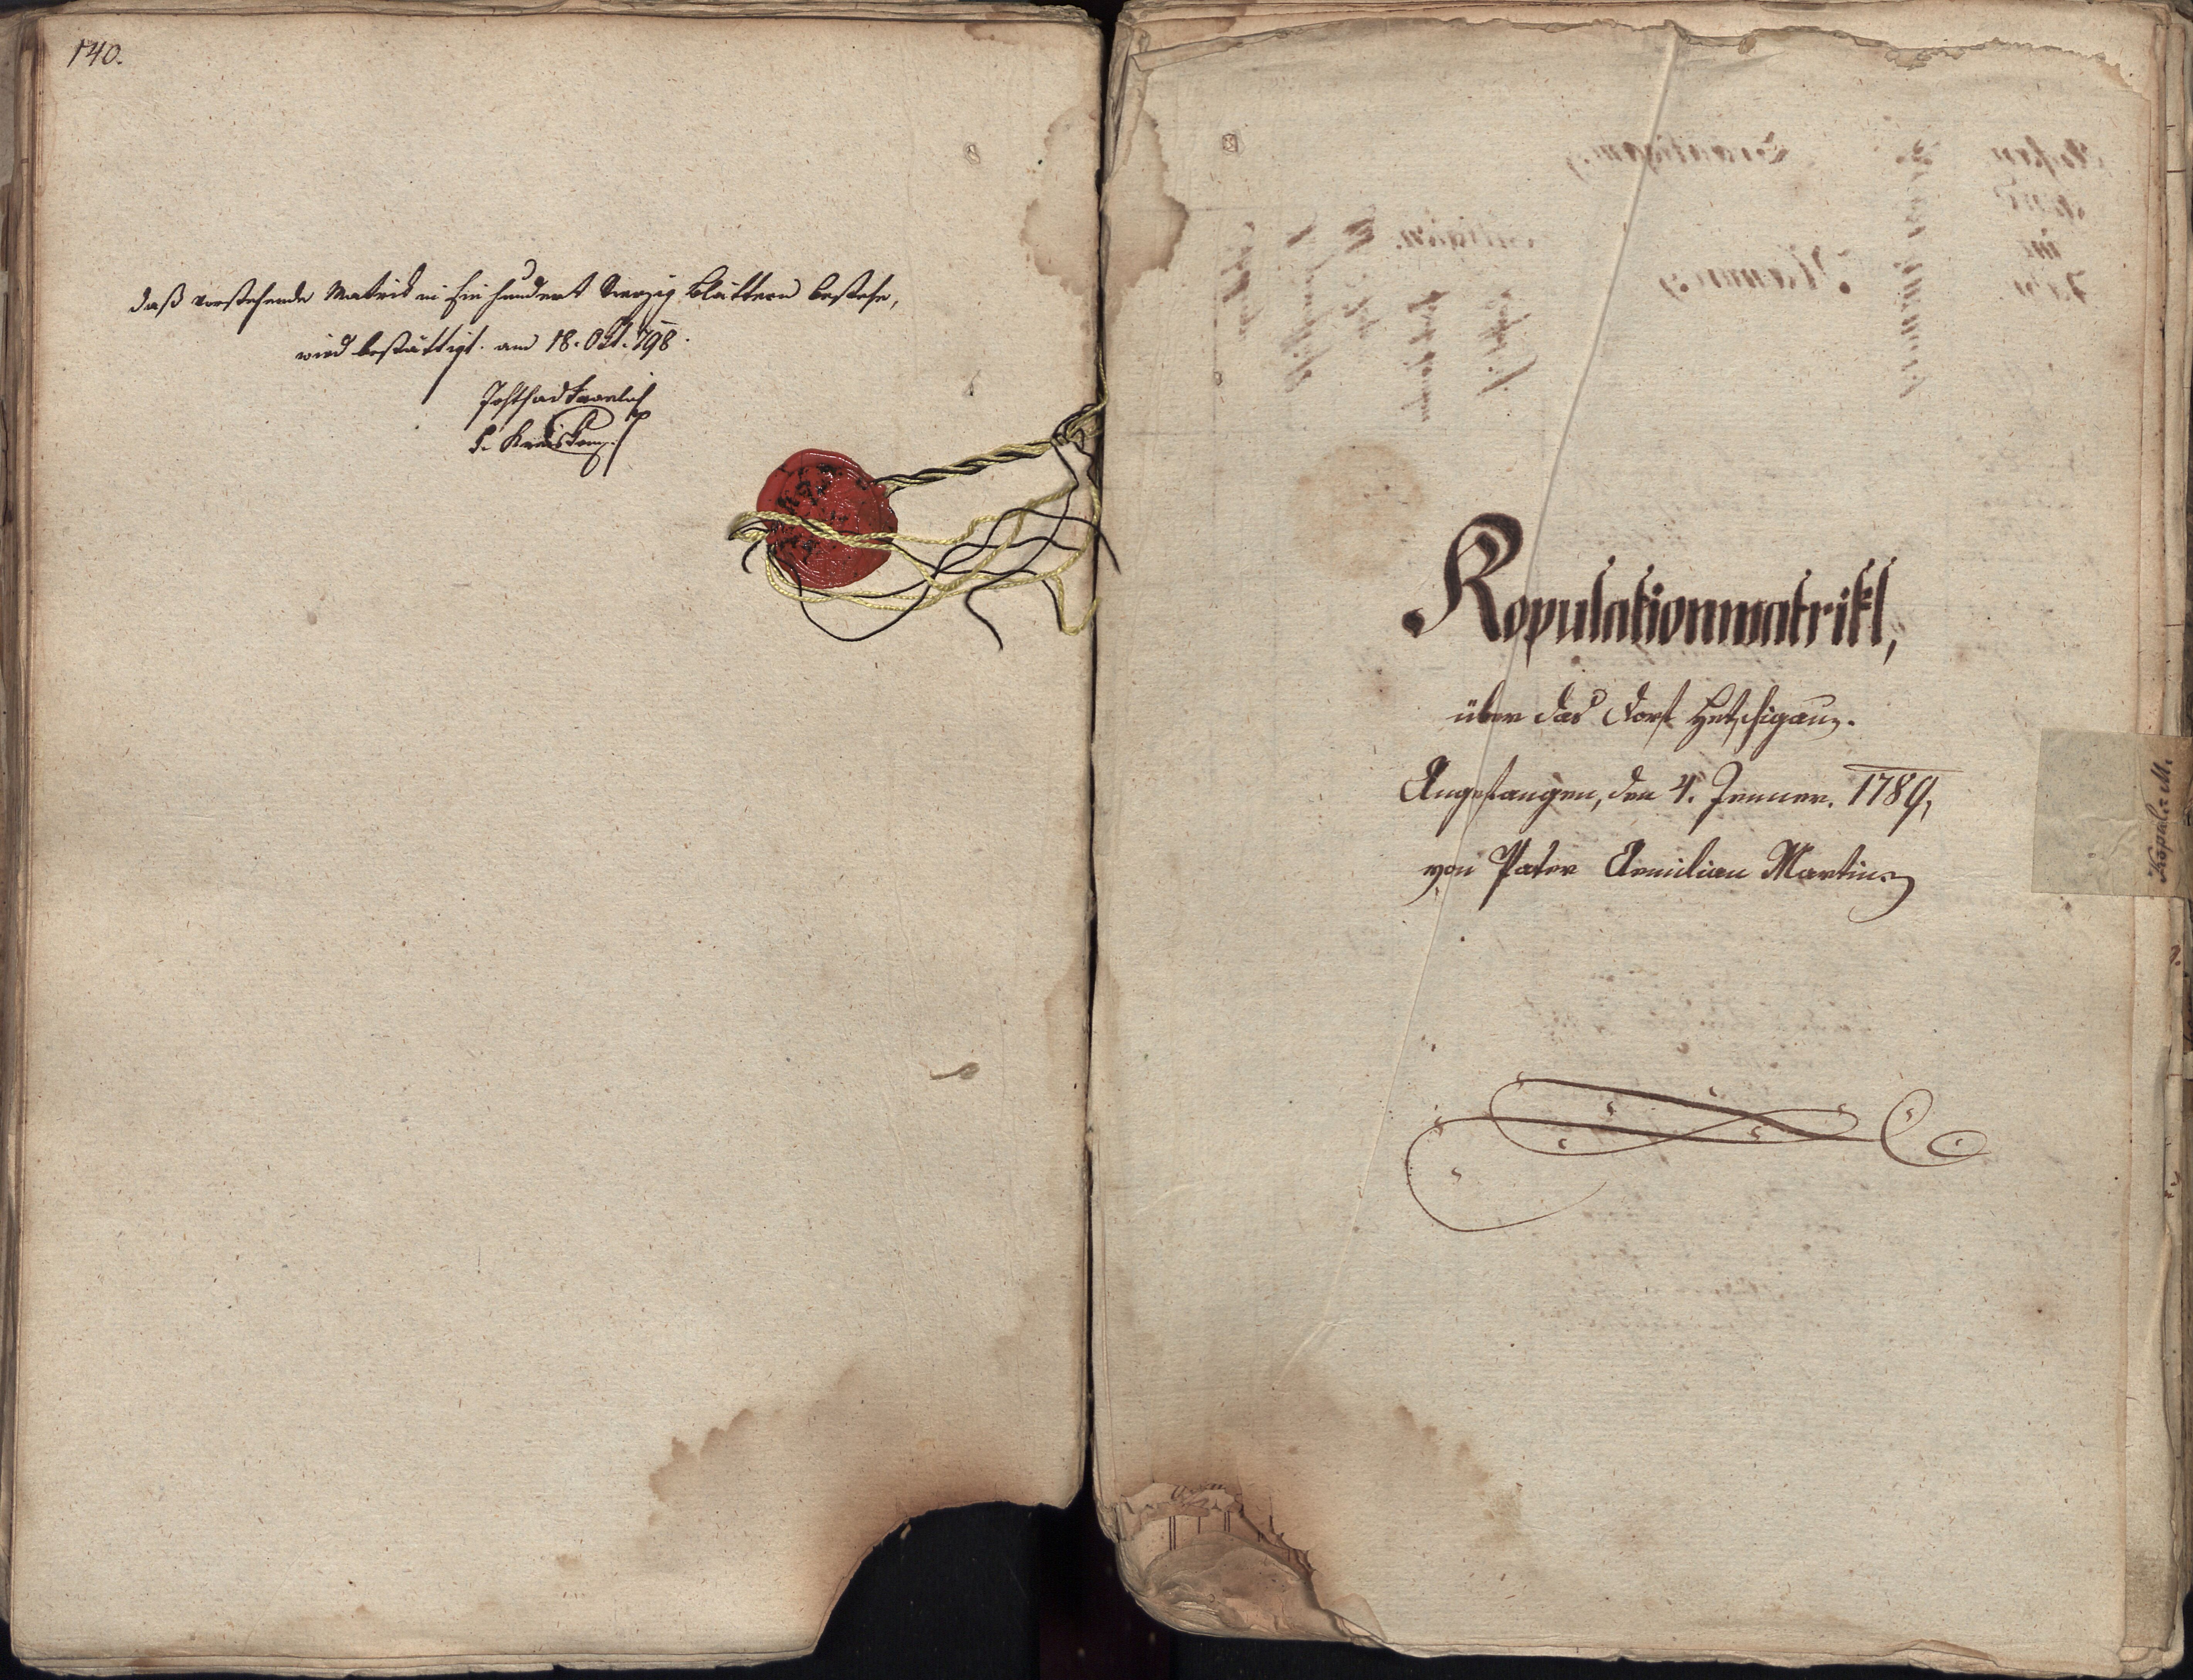 140.
daß vorstehende Matrik in Ein hundert Vierzig Blättern bestehe,
wird bestättigt. am 18. Okt. 798.
Kopulationmatrikl,
über das Dorf Hetschigau.
Angefangen, den 4. Jenner. 1789,
von Pater Aemilian Martinez
Kopul: M.